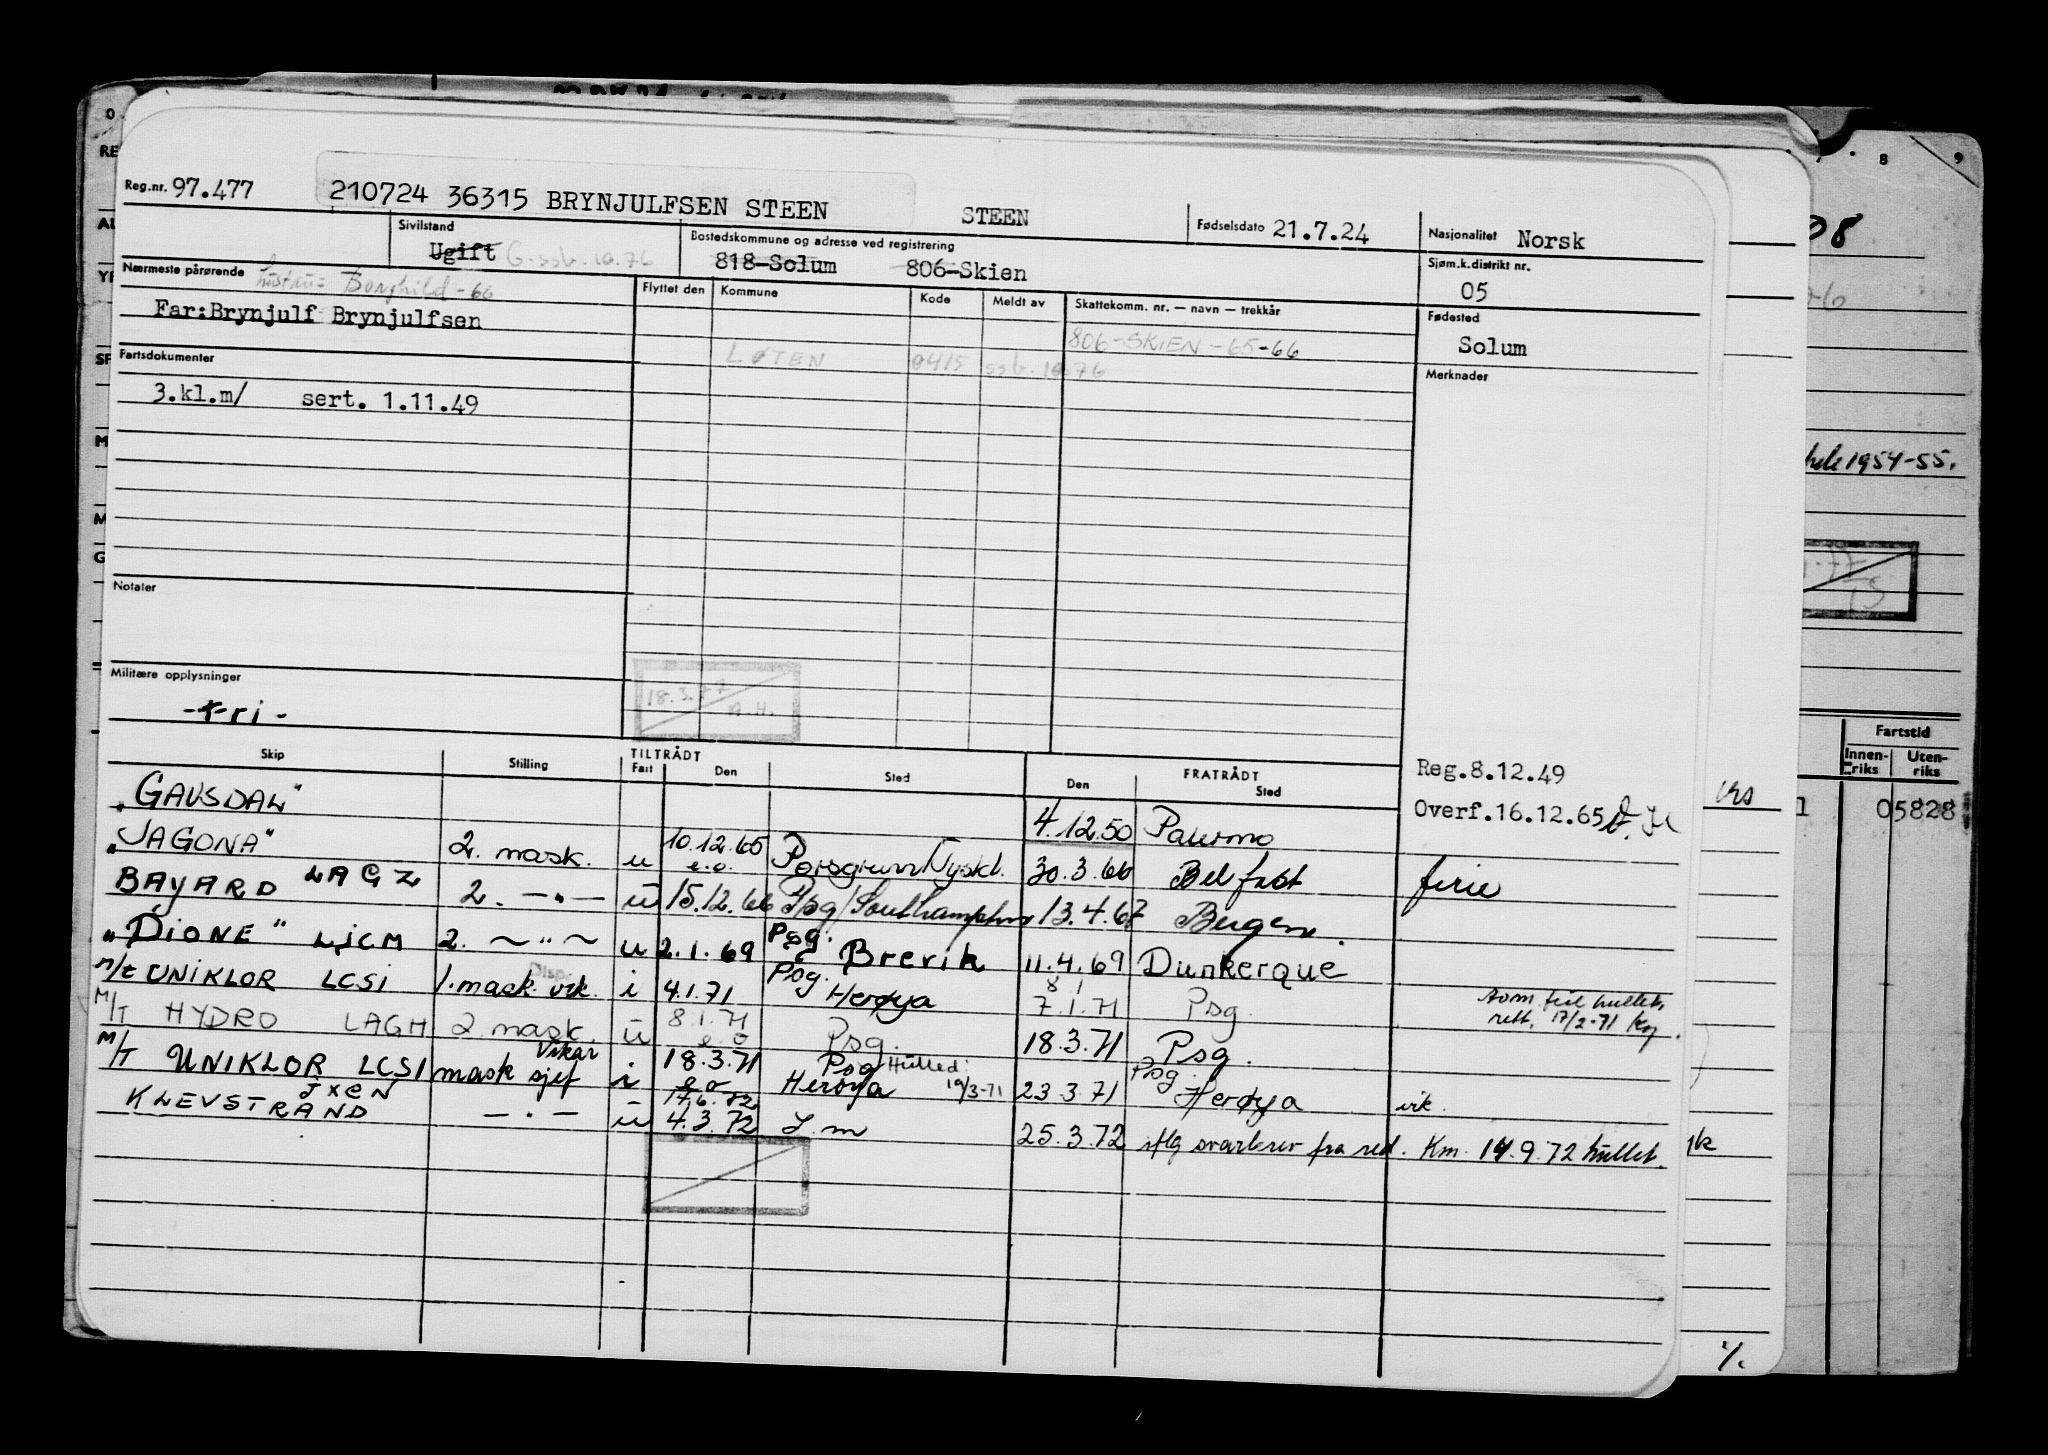 Reg.nr. 97.477 210724 36315 BRYNJULFSEN STEEN STEEN Fødselsdato 21.7.24 Nasjonalitet Norsk
Sivilstand Ugift G-ssb.10.76
Bostedskommune og adresse ved registrering
818-Solum 806-Skien
Sjøm.k.distrikt nr.
05
Nærmeste pårørende Borghild-66
Far:Brynjulf Brynjulfsen
Flyttet den Kommune Kode Meldt av Skattekomm. nr. — navn — trekkår
806-SKIEN-65-66
LØTEN 0415 ssb. 10.76
Fødested
Solum
Merknader
Fartsdokumenter
3.kl.m/ sert. 1.11.49
Notater
Militære opplysninger
-fri-
18.3.77
A.H.
Reg.8.12.49
Overf.16.12.65
TILTRÅDT FRATRÅDT
Skip Stilling Fart Den Sted Den Sted
"GAUSDAL" 4.12.50 Palermo
"JAGONA" LAGZ 2. mask. u 10.12.65 e.o. Porsgrunn/Nyskl. 30.3.66 Belfast ferie
BAYARD 2. -"- u 15.12.66 Psg/Southampton 13.4.67 Bergen.
"DIONE" LJCM 2. ~"~ u 2.1.69 Psg. Brevik 11.4.69 Dunkerque
M/T UNIKLOR LCSI 1. mask. vik. Disp. i 4.1.71 Psg. Herøya 8 7.1.71 Psg. som feil hullet, rett. 17/2-71
M/T HYDRO LAGH 2 mask. u 8.1.71 e.o Psg. 18.3.71 Psg.
M/T UNIKLOR LCSI mask sjef Vikar i 18.3.71 e.o Psg Herøya Hulled: 19/3-71 23.3.71 Psg. Herøya vik.
KLEVSTRAND JXEN -"- u 17.6.72 4.3.72 S.m 25.3.72 iflg svarbrev fra red. Km. 14.9.72 hullet.
8 9
08
hele 1954-55.
Fartstid
Innen-
riks
Uten-
riks
1 05828